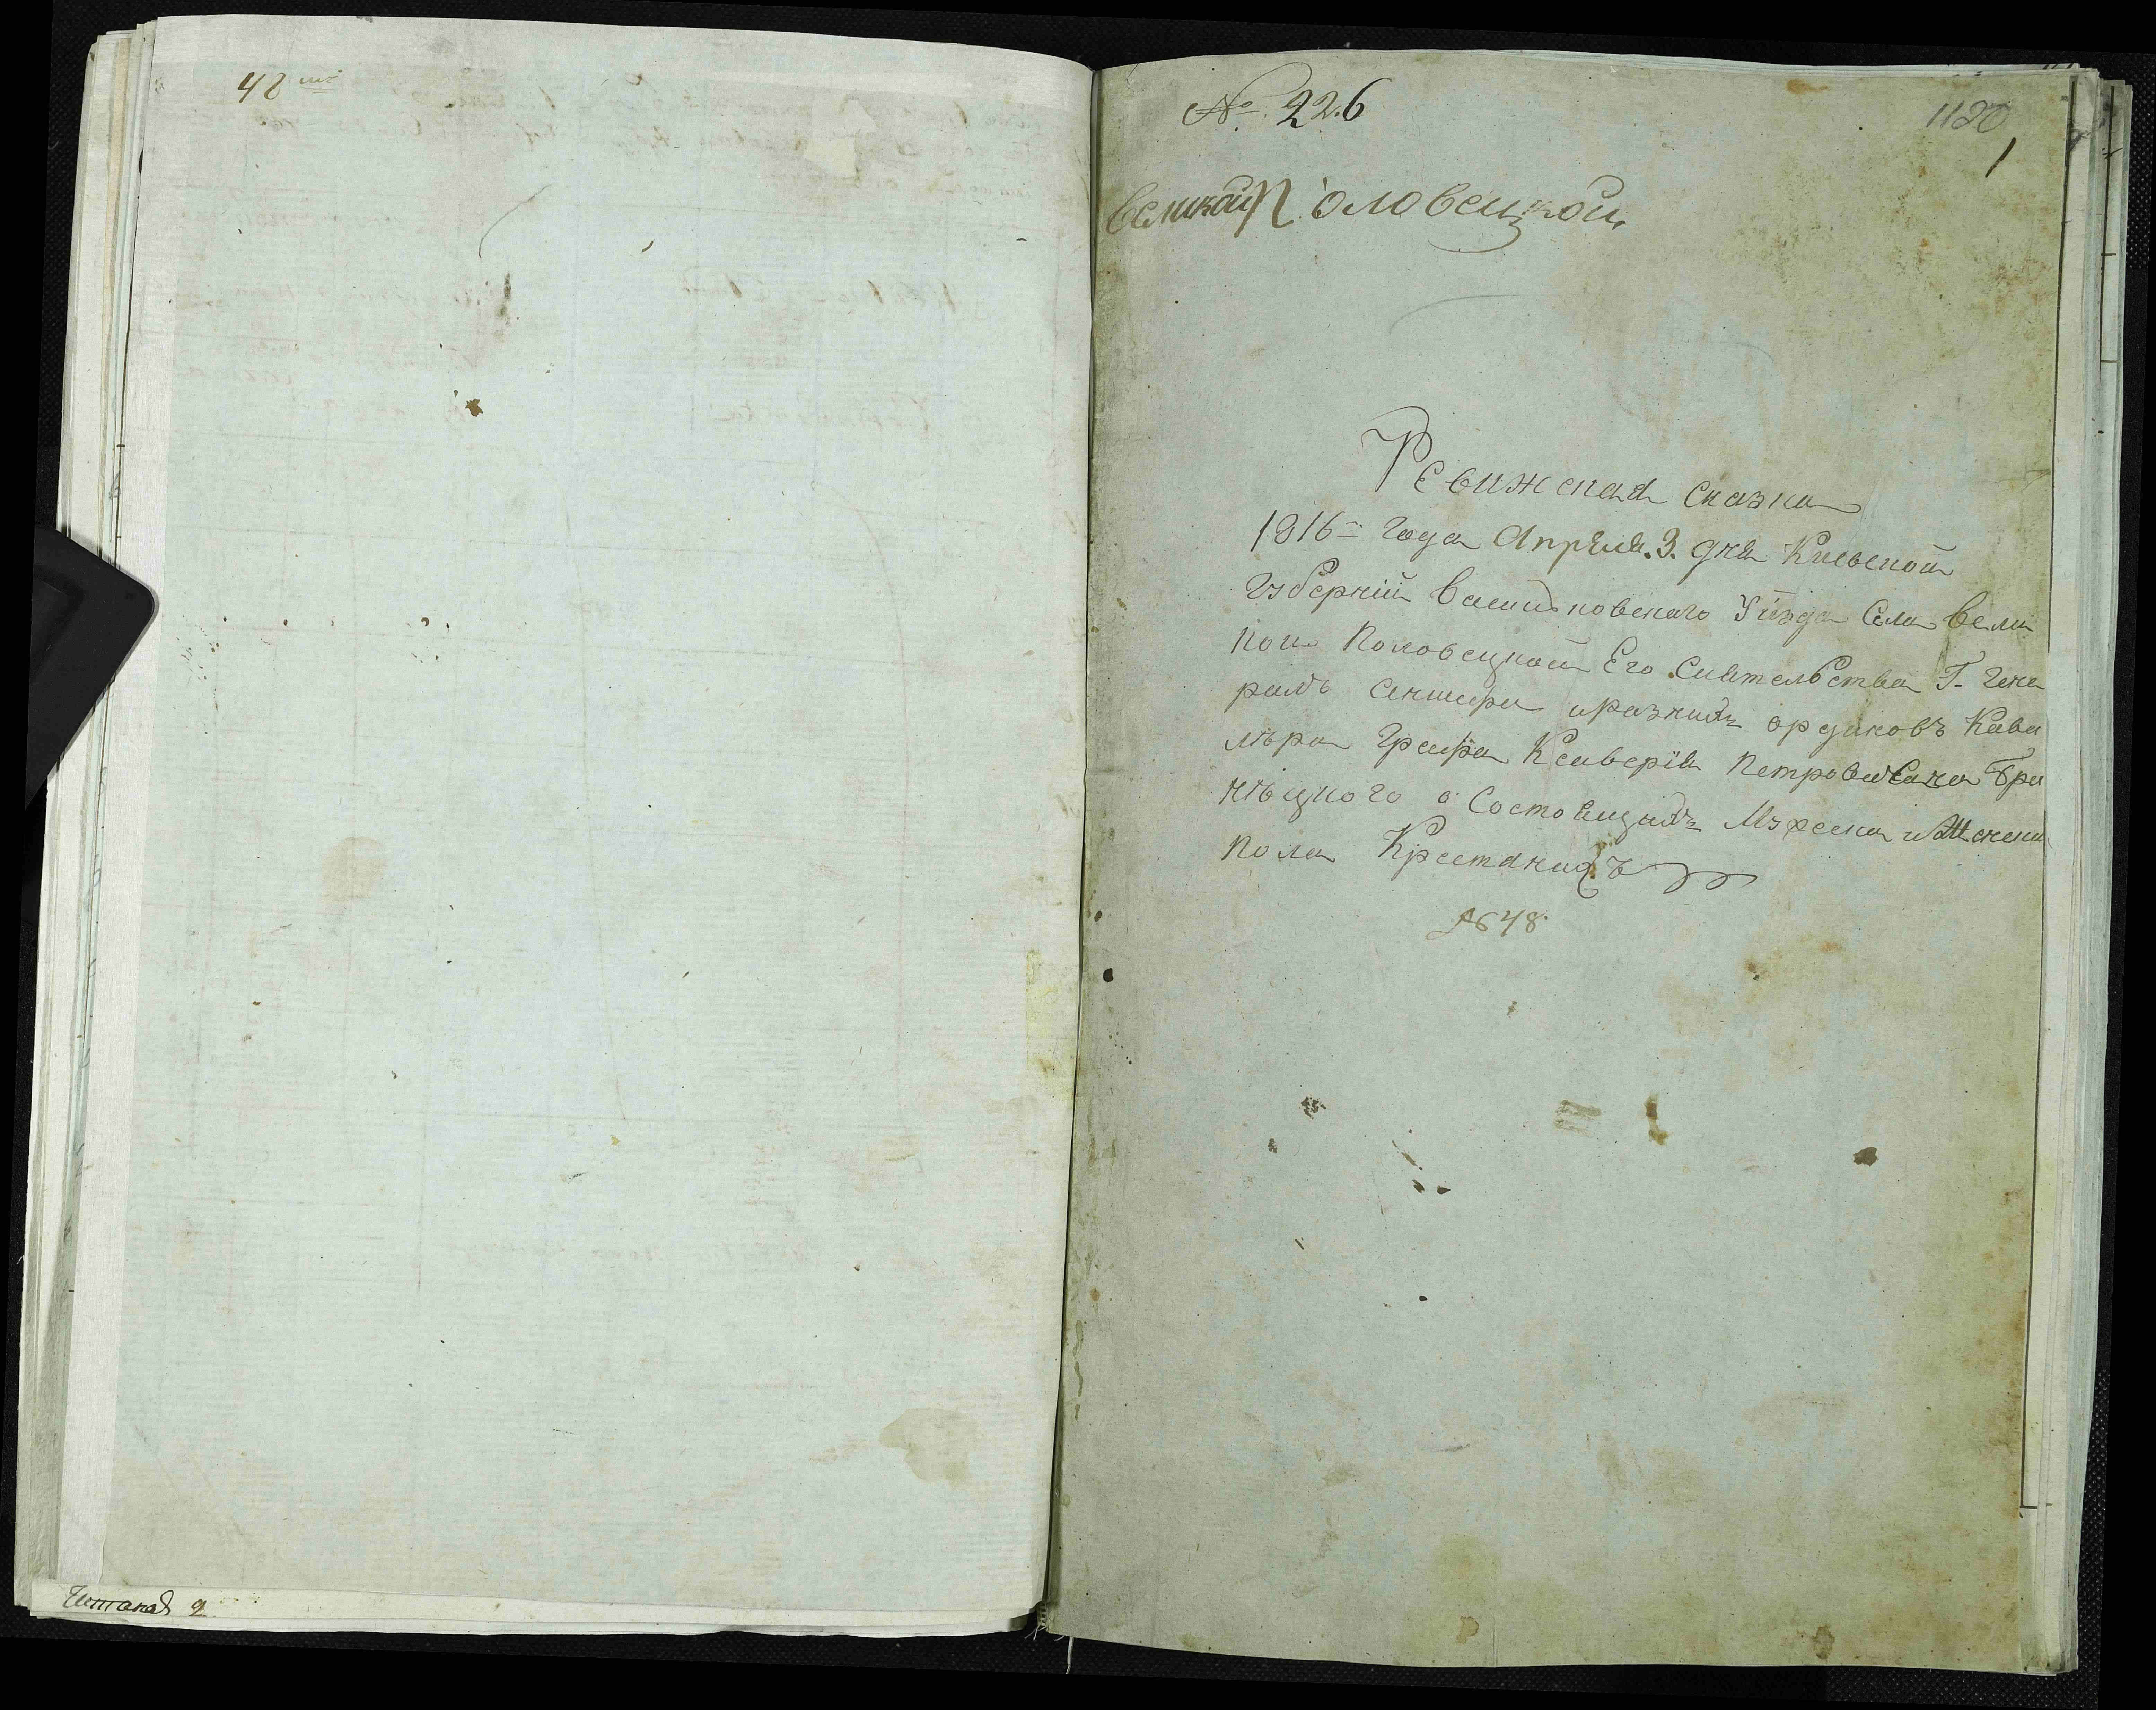 48
№ 226
1120
1
Великой Половецкой
Ревижская сказка
1816 года Апреля 3 дня Киевской
Губернїи Василковскаго Уѣзда Села Вели
кои Половецкой Его Сиятельства Г. Гене
ралъ Аншефа и разныхъ орденовъ Кава
лѣра Графа Ксаверїя Петровича Бра
нѣцкого о Состоящихъ Мужеска и Женска
пола Крестянихъ
№ 48
Читаная